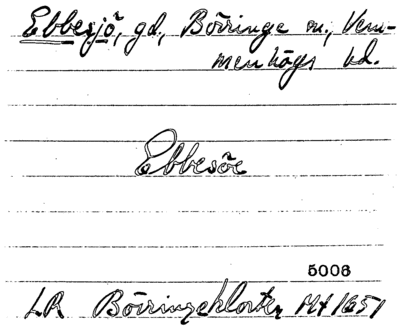 Ebbesjö, gd, Börringe sn, Vem-
menhögs hd.
Ebbesöe
5006
LR Börringekloster Mt 1651